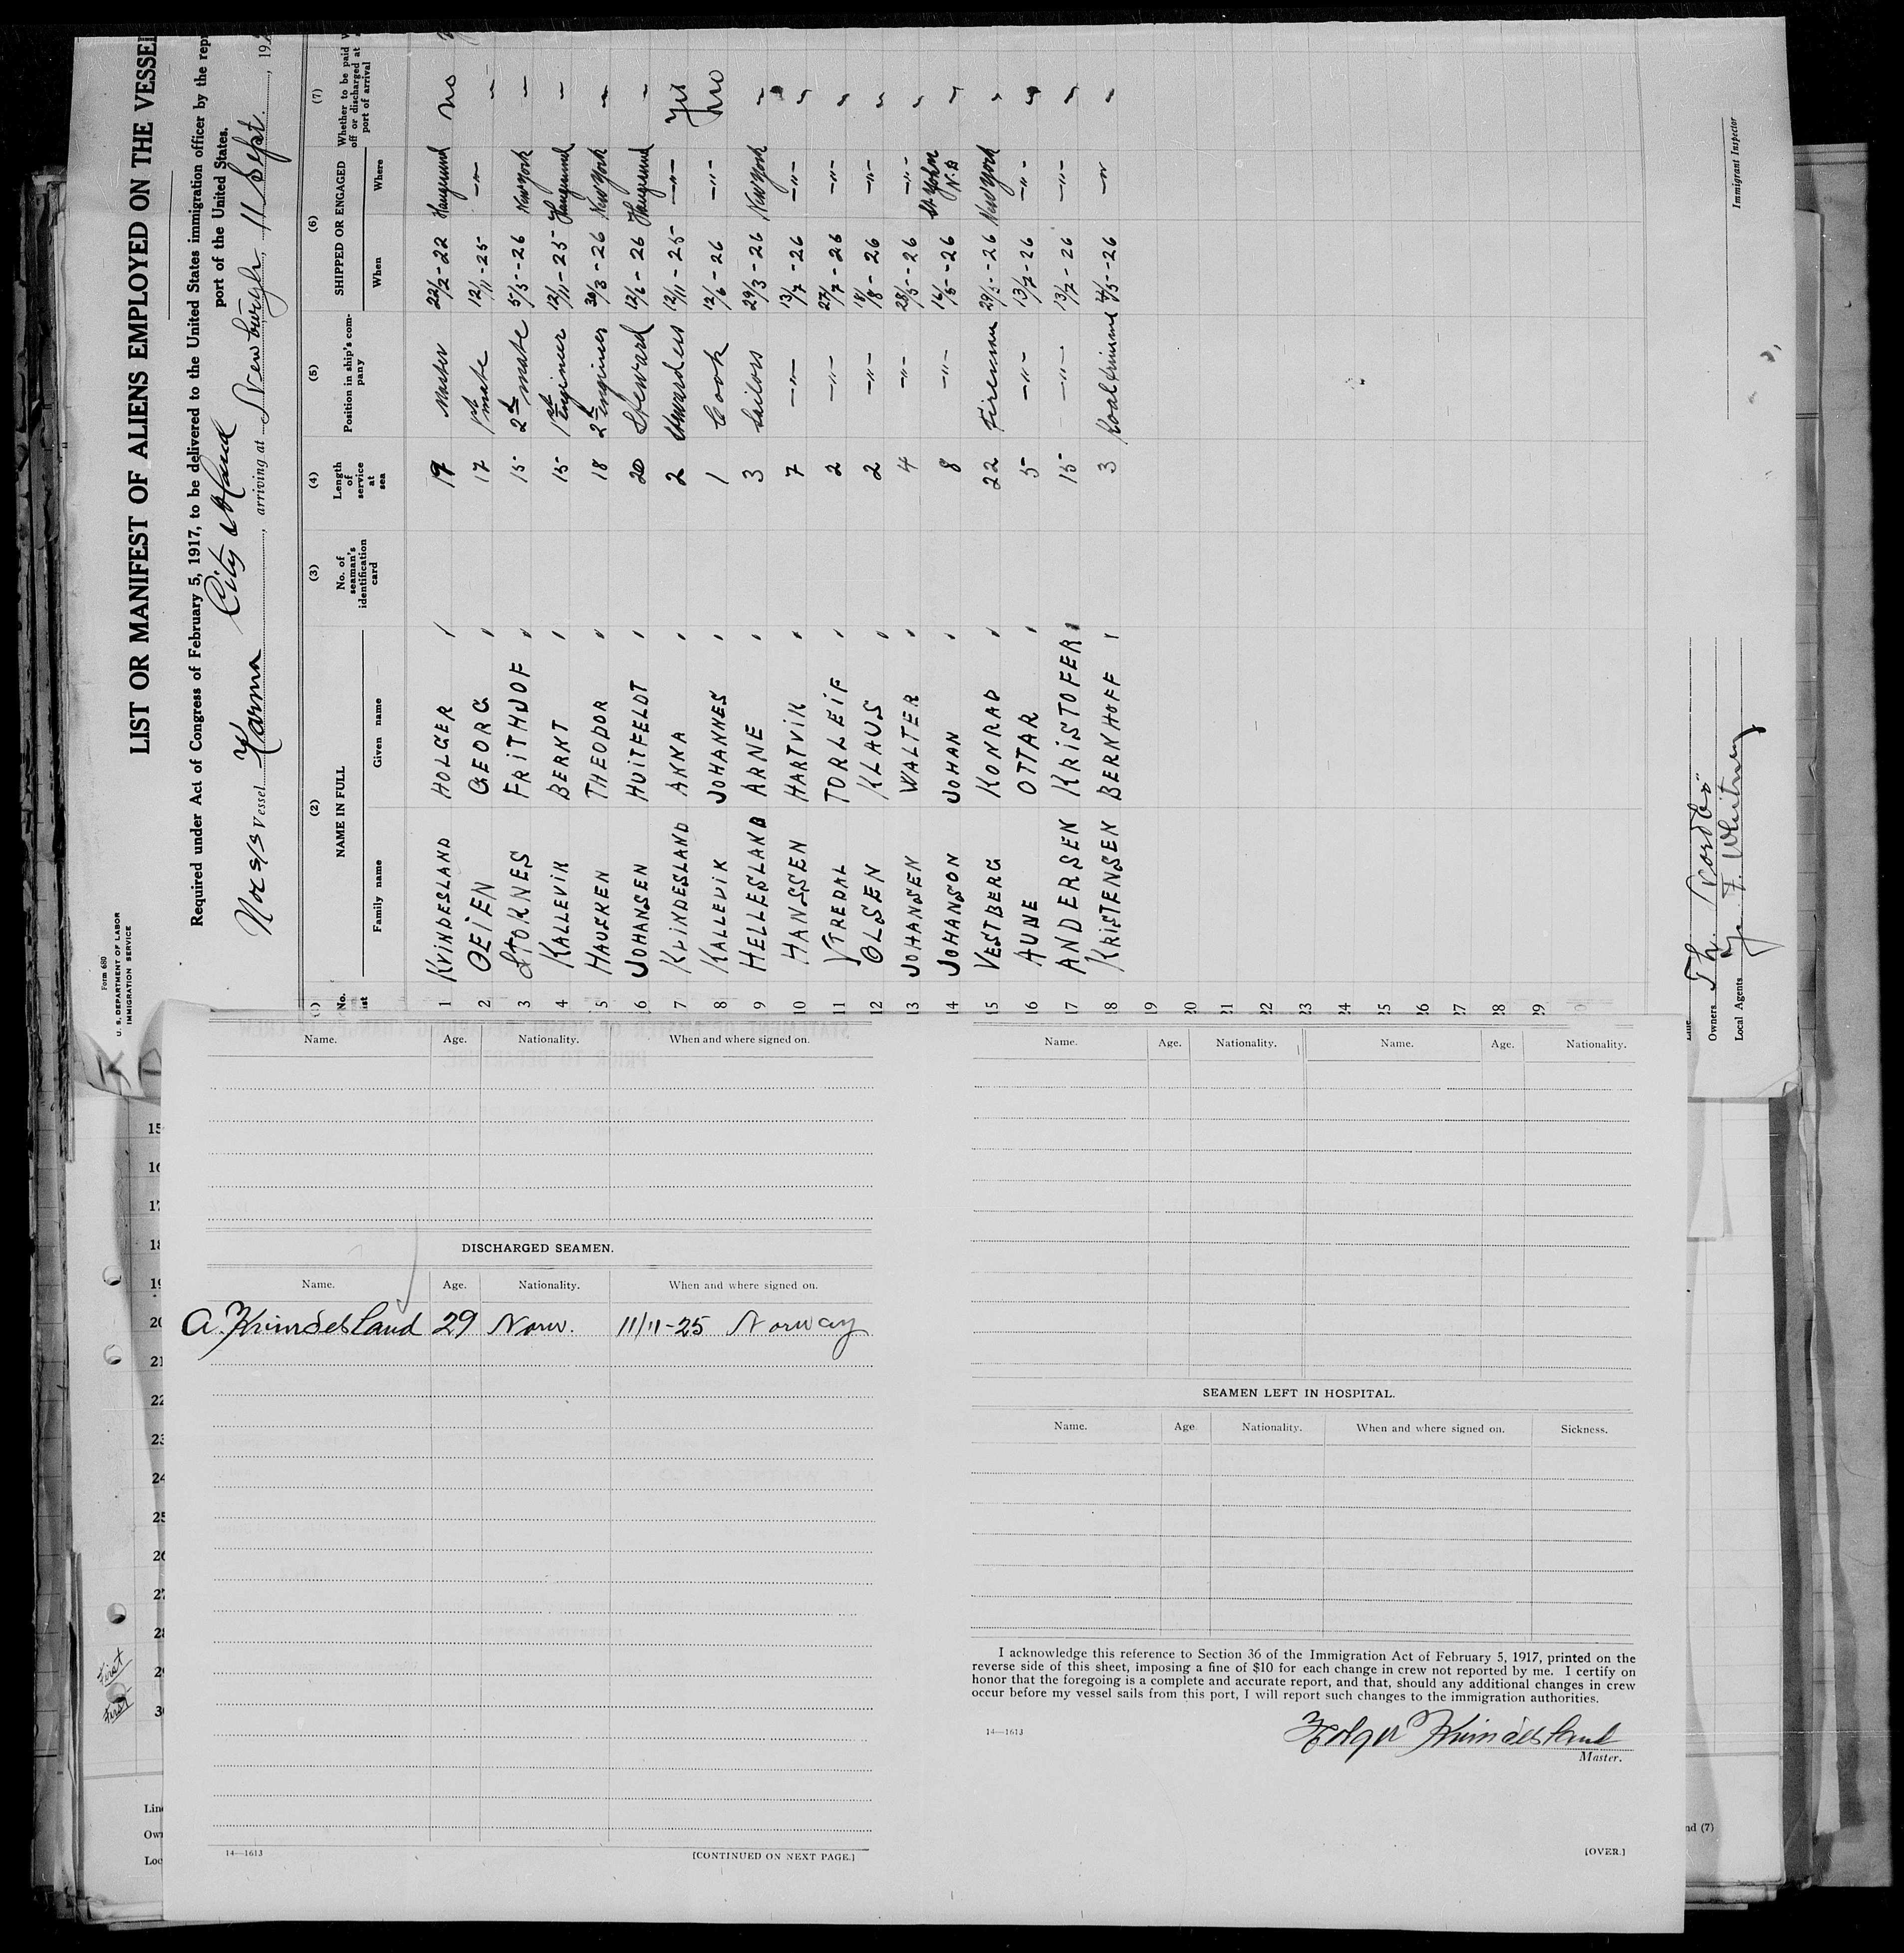 Form 680
U. S. DEPARTMENT OF LABOR
IMMIGRATION SERVICE
LIST OR MANIFEST OF ALIENS EMPLOYED ON THE VESSEL
Required under Act of Congress of February 5, 1917, to be delivered to the United States immigration officer by the repr
port of the United States.
Nor s/s Vessel Karma City Island, arriving at Newburgh, 11 Sept., 192
(1) (2) (3) (4) (5) (6) (7)
No. NAME IN FULL No. of seaman's identification card Length of service at sea Position in ship's company SHIPPED OR ENGAGED Whether to be paid off or discharged at port of arrival
ist Family name Given name When Where
1 KVINDESLAND HOLGER 19 Master 22/2-22 Haugesund no
2 OEIEN GEORG 17 1st mate 12/11-25 -"- "
3 STORNES FRITHJOF 15 2d mate 5/3-26 New York "
4 KALLEVIK BERNT 15 1st Engineer 12/11-25 Haugesund "
5 HAUSKEN THEODOR 18 2d engineer 30/3-26 New York "
6 JOHANSEN HUITFELDT 20 Steward 12/6-26 Haugesund "
7 KVINDESLAND ANNA 2 Stewardess 12/11-25 -"- Yes
8 KALLEVIK JOHANNES 1 Cook 12/6-26 -"- no
9 HELLESLAND ARNE 3 Sailors 29/3-26 New York "
10 HANSSEN HARTVIK 7 -"- 13/7-26 -"- "
11 VTREDAL TORLEIF 2 -"- 27/7-26 -"- "
12 OLSEN KLAUS 2 -"- 18/8-26 -"- "
13 JOHANSEN WALTER 4 -"- 28/5-26 -"- "
14 JOHANSON JOHAN 8 -"- 16/5-26 St. John N.B "
15 VESTBERG KONRAD 22 Firemenn 29/3-26 New York "
16 AUNE OTTAR 5 -"- 13/7-26 -"- "
17 ANDERSEN KRISTOFER 15 -"- 13/7-26 -"- "
18 KRISTENSEN BERNHOFF 3 /5-26 "
19
20
21
22
23
24
25
26
27
28
29
Line
Owners Th.
Local Agents F. Whitney
Immigrant Inspector
Name. Age. Nationality. When and where signed on.
DISCHARGED SEAMEN.
Name. Age. Nationality. When and where signed on.
A. Kvindesland 29 Norw. 11/11-25 Norway
14—1613
[CONTINUED ON NEXT PAGE.]
Name. Age. Nationality. Name. Age. Nationality.
SEAMEN LEFT IN HOSPITAL.
Name. Age Nationality. When and where signed on. Sickness.
I acknowledge this reference to Section 36 of the Immigration Act of February 5, 1917, printed on the
reverse side of this sheet, imposing a fine of $10 for each change in crew not reported by me. I certify on
honor that the foregoing is a complete and accurate report, and that, should any additional changes in crew
occur before my vessel sails from this port, I will report such changes to the immigration authorities.
14—1613
Holger Kvindesland
Master.
[OVER.]
15
16
17
18
19
20
21
22
23
24
25
26
27
28
29
30
First
First
Lin
Own
Loc
nd (7)